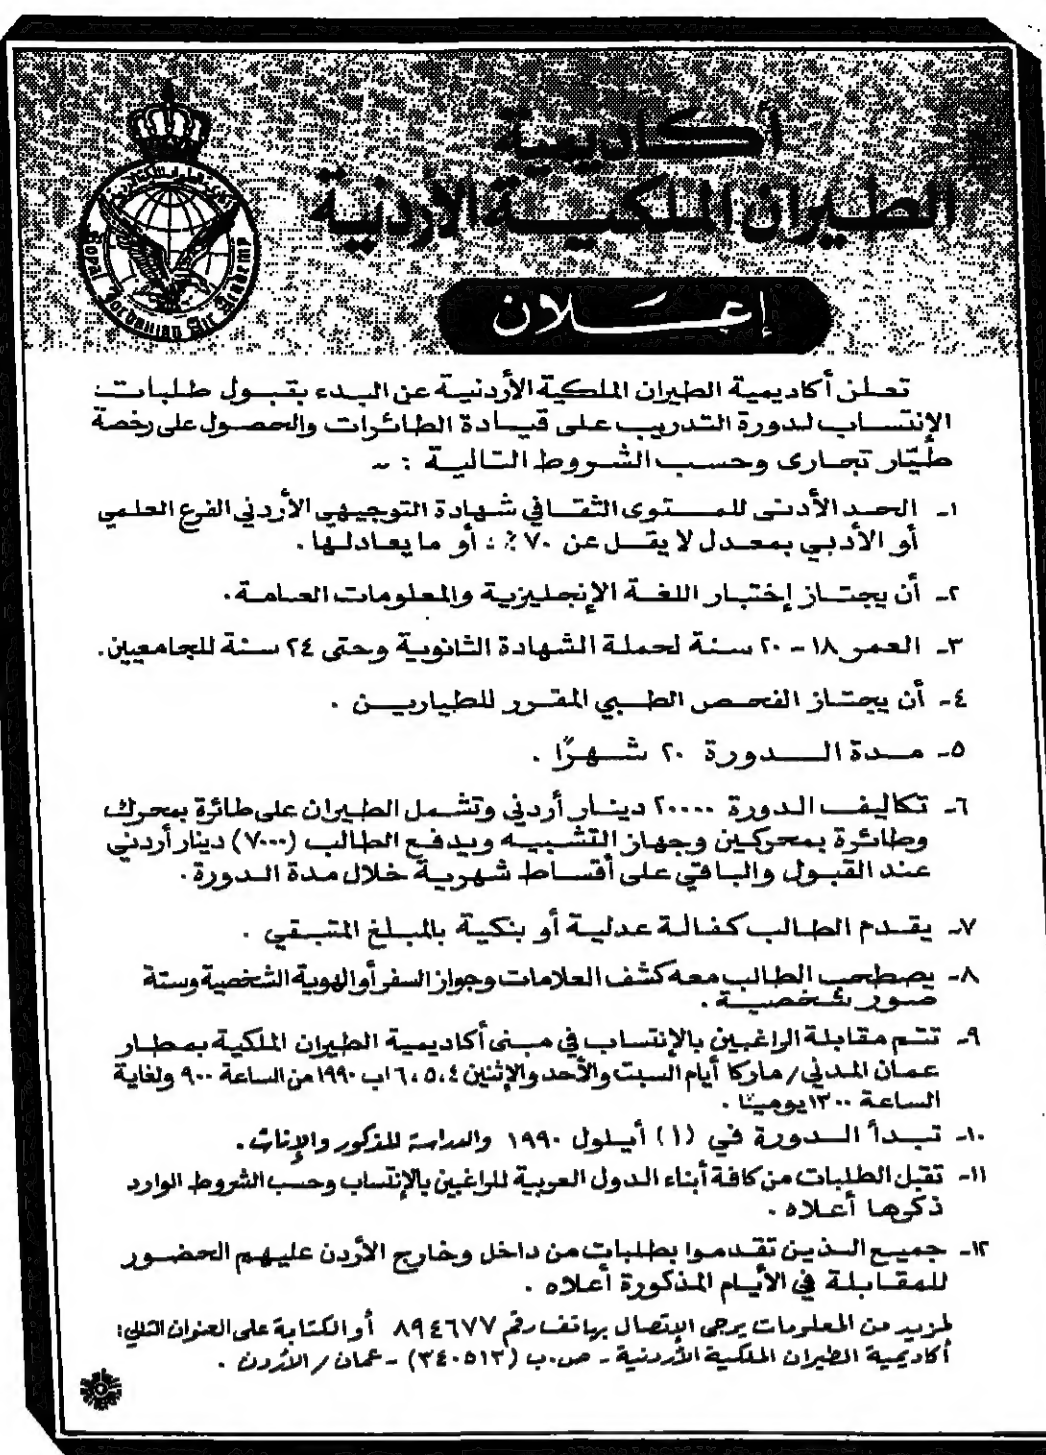 أكاديمية
الطيران الملكية الأردنية
Royal Jordanian Air Academy
إعلان
تعلن أكاديمية الطيران الملكية الأردنية عن البدء بقبول طلبات
الإنتساب لدورة التدريب على قيادة الطائرات والحصول على رخصة
طيّار تجارى وحسب الشروط التالية : -
١- الحد الأدنى للمستوى الثقافي شهادة التوجيهي الأردني الفرع العلمي
أو الأدبي بمعدل لا يقل عن ٧٠٪ : أو ما يعادلها .
٢- أن يجتاز إختبار اللغة الإنجليزية والمعلومات العامة .
٣- العمر ١٨ - ٢٠ سنة لحملة الشهادة الثانوية وحتى ٢٤ سنة للجامعيين .
٤- أن يجتاز الفحص الطبي المقرر للطيارين .
٥- مدة الدورة ٢٠ شهرًا .
٦- تكاليف الدورة ٢٠٠٠٠ دينار أردني وتشمل الطيران على طائرة بمحرك
وطائرة بمحركين وجهاز التشبيه ويدفع الطالب (٧٠٠٠) دينار أردني
عند القبول والباقي على أقساط شهرية خلال مدة الدورة .
٧- يقدم الطالب كفالة عدلية أو بنكية بالمبلغ المتبقي .
٨- يصطحب الطالب معه كشف العلامات وجواز السفر أو الهوية الشخصية وستة
صور شخصية .
٩- تتم مقابلة الراغبين بالإنتساب في مبنى أكاديمية الطيران الملكية بمطار
عمان المدني / ماركا أيام السبت والأحد والإثنين ٤،٥،٦ اب ١٩٩٠ من الساعة ٩٠٠ ولغاية
الساعة ١٣٠٠ يوميًا .
١٠- تبدأ الدورة في (١) أيلول ١٩٩٠ والدراسة للذكور والإناث .
١١- تقبل الطلبات من كافة أبناء الدول العربية للراغبين بالإنتساب وحسب الشروط الوارد
ذكرها أعلاه .
١٢- جميع الذين تقدموا بطلبات من داخل وخارج الأردن عليهم الحضور
للمقابلة في الأيام المذكورة أعلاه .
لمزيد من المعلومات يرجى الإتصال بهاتف رقم ٨٩٤٦٧٧ أو الكتابة على العنوان التالي :
أكاديمية الطيران الملكية الأردنية - ص.ب (٣٤٠٥١٣) - عمان / الأردن .